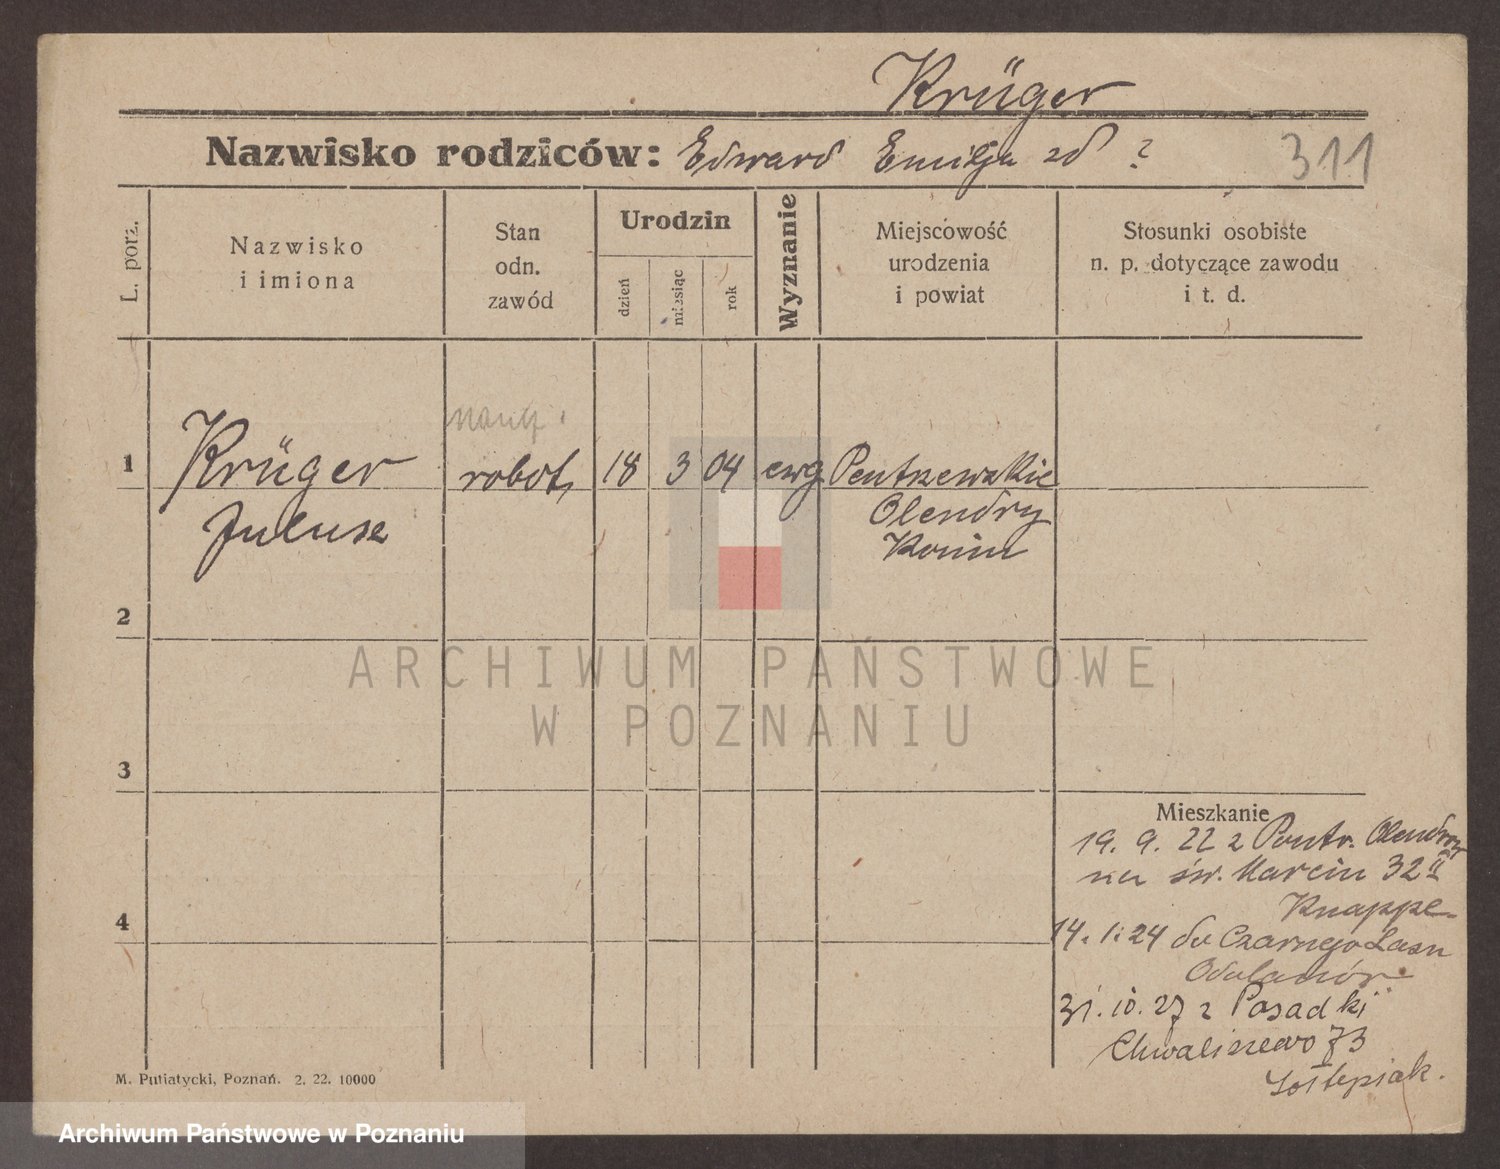 Krüger
Nazwisko rodziców: Edward Emilja zd ?
311
L. porz.
Nazwisko
i imiona
Stan
odn.
zawód
Urodzin
dzień
miesiąc
rok
Wyznanie
Miejscowość
urodzenia
i powiat
Stosunki osobiste
n. p. dotyczące zawodu
i t. d.
1
Krüger
Juljusz
robot.
18
3
04
ewg
Pentrzewskie
Olendry
Konin
2
3
4
Mieszkanie
19. 9. 22 z Pentr. Olendry
na św. Marcin 32 II
Knappe
14. 1. 24 do Czarnego Lasu
Odolanów
31. 10. 27 z Posadki
Chwaliszewo 73
M. Putiatycki, Poznań. 2. 22. 10000
ARCHIWUM PAŃSTWOWE
W POZNANIU
Archiwum Państwowe w Poznaniu